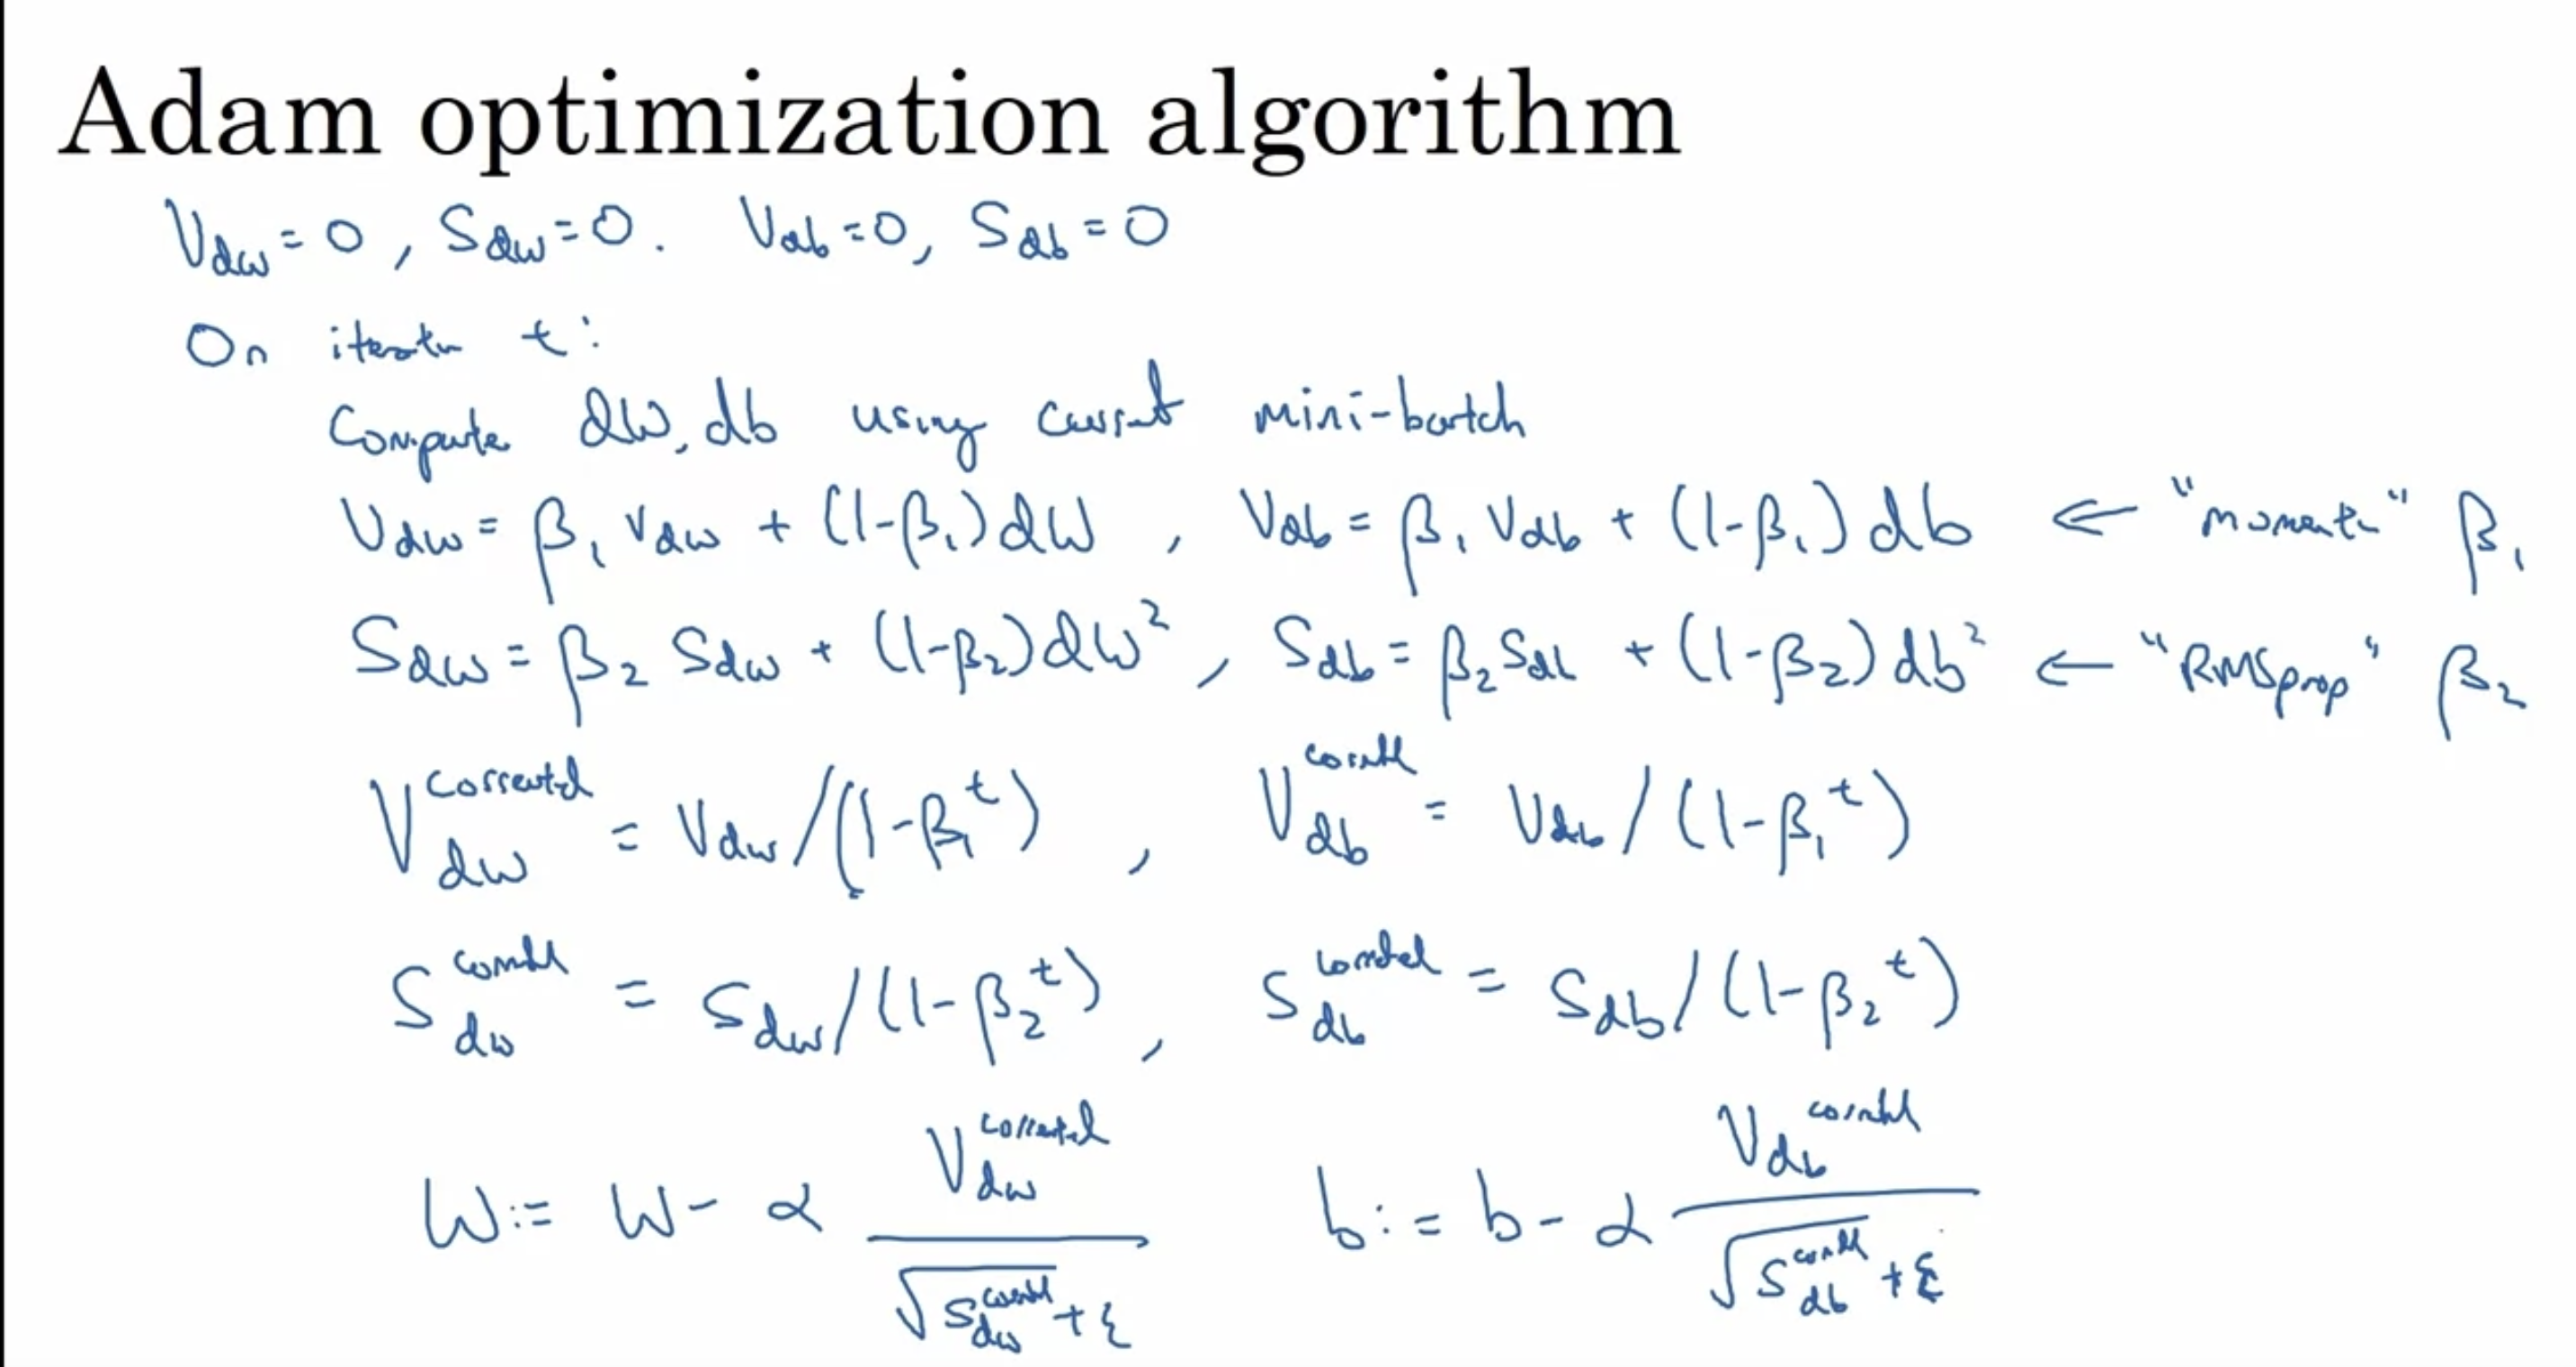 Adam optimization algorithm
V_dw = 0, S_dw = 0. V_db = 0, S_db = 0
On iteratn t:
Compute dW, db using current mini-batch
V_dw = β₁ V_dw + (1-β₁) dW , V_db = β₁ V_db + (1-β₁) db ← "momentn" β₁
S_dw = β₂ S_dw + (1-β₂) dW² , S_db = β₂ S_db + (1-β₂) db² ← "RMSprop" β₂
V_dw^corrected = V_dw/(1-β₁^t) , V_db^corrected = V_db/(1-β₁^t)
S_dw^corrected = S_dw/(1-β₂^t) , S_db^corrected = S_db/(1-β₂^t)
W := W - α V_dw^corrected / (√S_dw^corrected + ε) b := b - α V_db^corrected / (√S_db^corrected + ε)